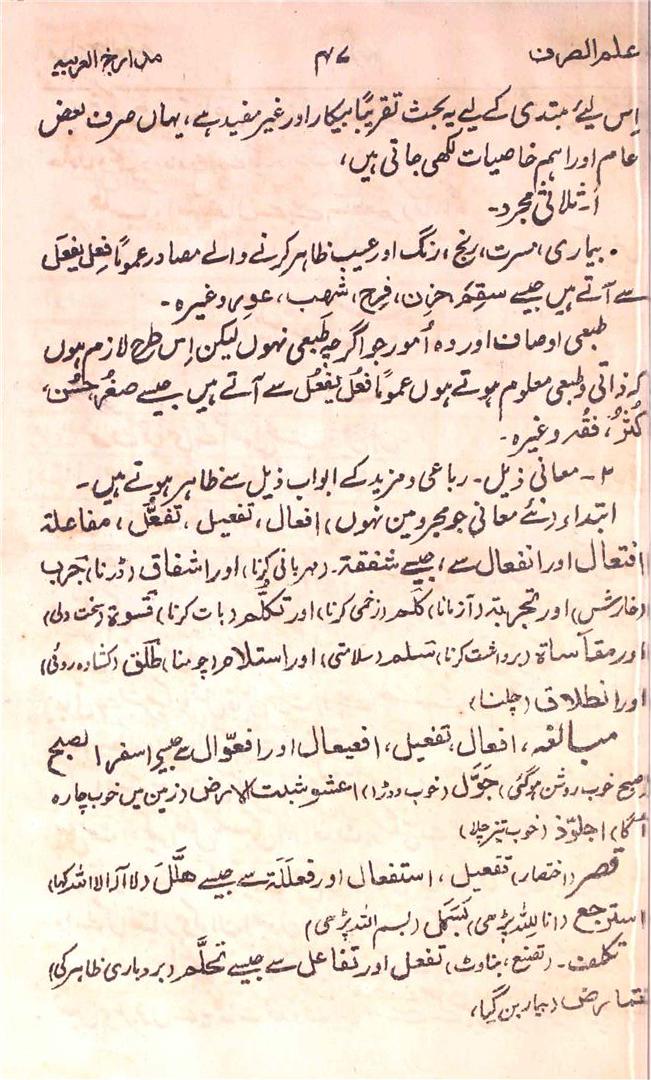 علم الصرف ۴۷ مدارج العربیہ
اِس لیۓ مبتدی کے لیے یہ بحث تقریبًا بیکار اور غیر مفید ہے، یہاں صرف بعض
عام اور اہم خاصیات لکھی جاتی ہیں،
اَ۔ ثلاثی مجرد۔
۰ بیماری، مسرت، رنج، رنگ اور عیب ظاہر کرنے والے مصادر عمومًا فعِل یفعَل
سے آتے ہیں جیسے سقِم، حزِن، فرِح، شهِب، عوِر وغیرہ۔
طبعی اوصاف اور وہ اُمور جو اگرچہ طبعی نہوں لیکن اِس طرح لازم ہوں
کہ ذاتی وطبعی معلوم ہوتے ہوں عمومًا فعُل یفعُل سے آتے ہیں جیسے صغُر، حسُن،
کثُر، فقُہ وغیرہ۔
۲۔ معانی ذیل۔ رباعی و مزید کے ابواب ذیل سے ظاہر ہوتے ہیں۔
ابتداء (نۓ معانی جو مجرد مین نہوں) افعال، تفعیل، تفعُّل، مفاعلة
افتعال اور انفعال سے، جیسے شفقة۔ (مہربانی کرنا) اور اشفاق (ڈرنا) جَرب
(خارش) اور تجربة (آزمانا) کَلْم (زخمی کرنا) اور تکلُّم (بات کرنا) قسوة (سخت دلی)
اور مقاساة (برداشت کرنا) سَلم (سلامتی) اور استلام (چومنا) طَلْق (کشادہ روئی)
اور انطلاق (چلنا)
مبالغہ، افعال، تفعیل، افعیعال اور افعوّال سے جیسے اسفر الصبح
(صبح خوب روشن ہوگئی) جَوَّل (خوب دوڑا) اعشوشبت الارض (زمین میں خوب چارہ
اُگا) اجلوّذ (خوب تیز چلا)
قصر (اختصار) تفعیل، استفعال اور فعلَلَة سے جیسے هلَّلَ (لا الہ الا اللہ کہا)
استرجع (انا للہ پڑھی) بَسْمَلَ (بسم اللہ پڑھی)
تکلف۔ (تصنع، بناوٹ) تفعل اور تفاعل سے جیسے تحلَّم (بردباری ظاہر کی)
تمارض (بیمار بن گیا)،